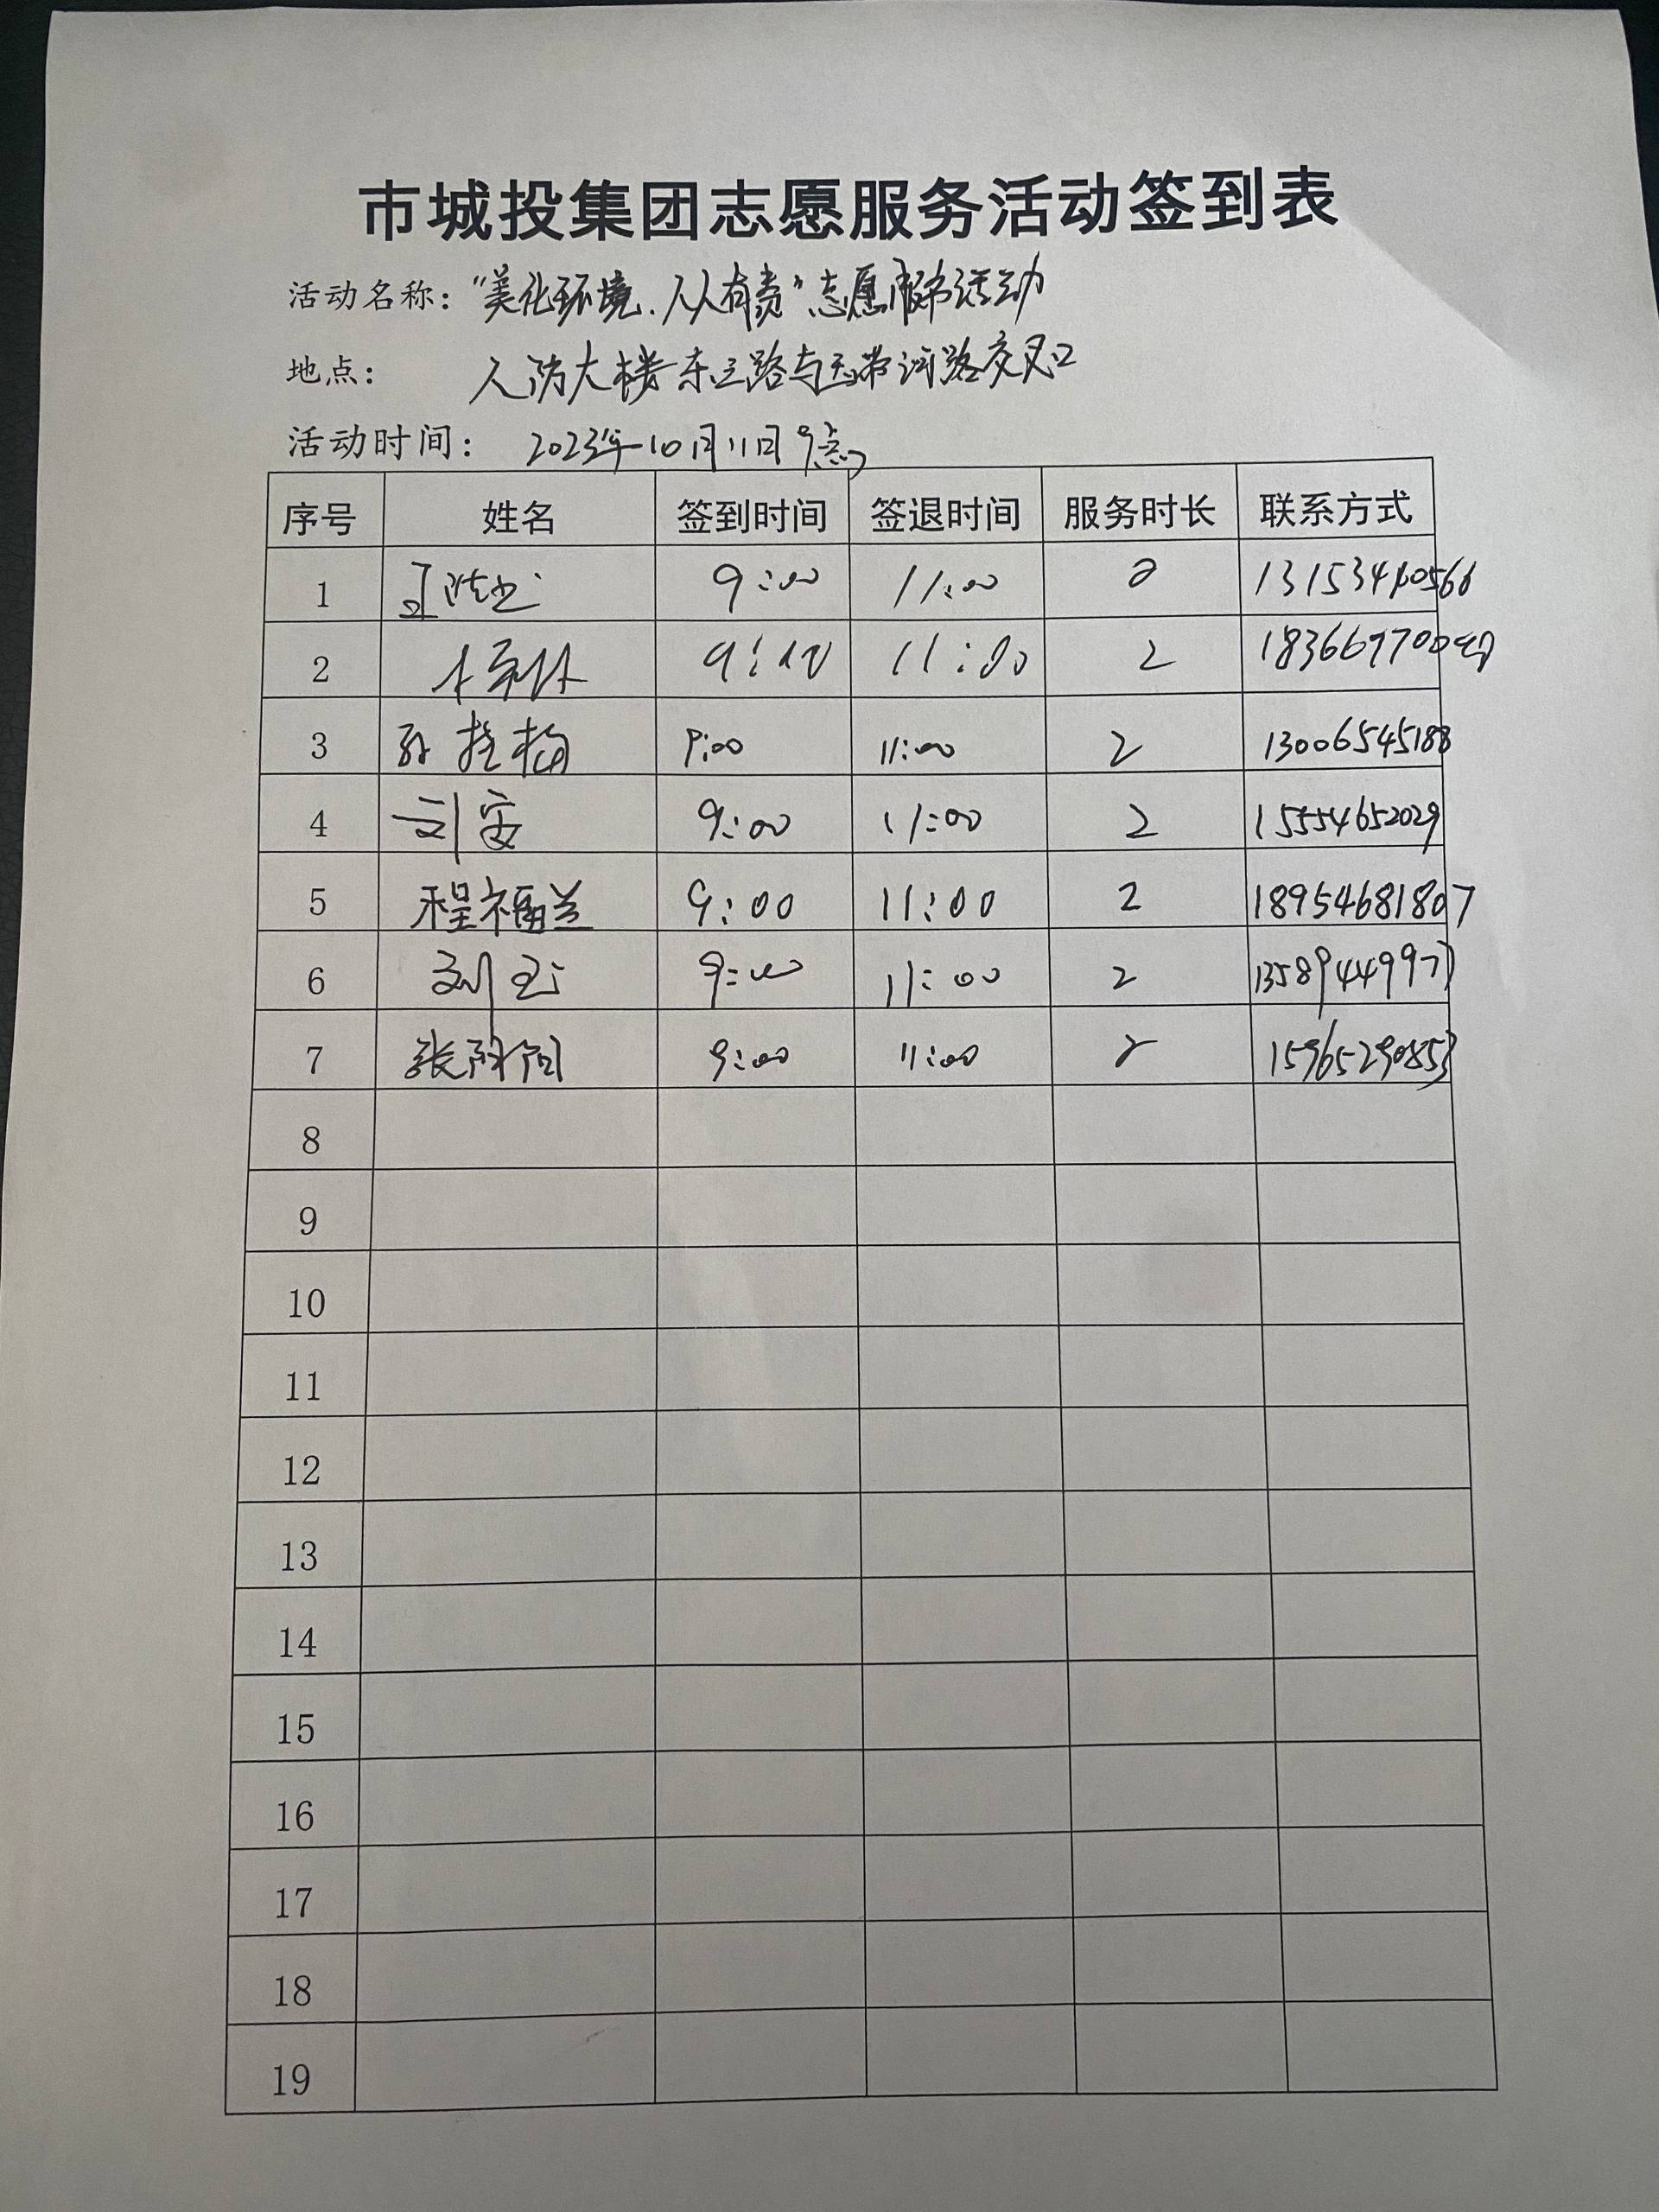 市城投集团志愿服务活动签到表
活动名称：“美化环境、人人有责”志愿服务活动
地点： 人防大楼东三路与玉带河路交叉口
活动时间： 2023年10月11日 9点
序号 姓名 签到时间 签退时间 服务时长 联系方式
1 9:00 11:00 2
2 11:00 2
3 9:00 11:00 2 13006545188
4 刘安 9:00 11:00 2 15554652029
5 程福兰 9:00 11:00 2 18954681807
6 刘 9:00 11:00 2 13589449977
7 张 9:00 11:00 2 15965290853
8
9
10
11
12
13
14
15
16
17
18
19